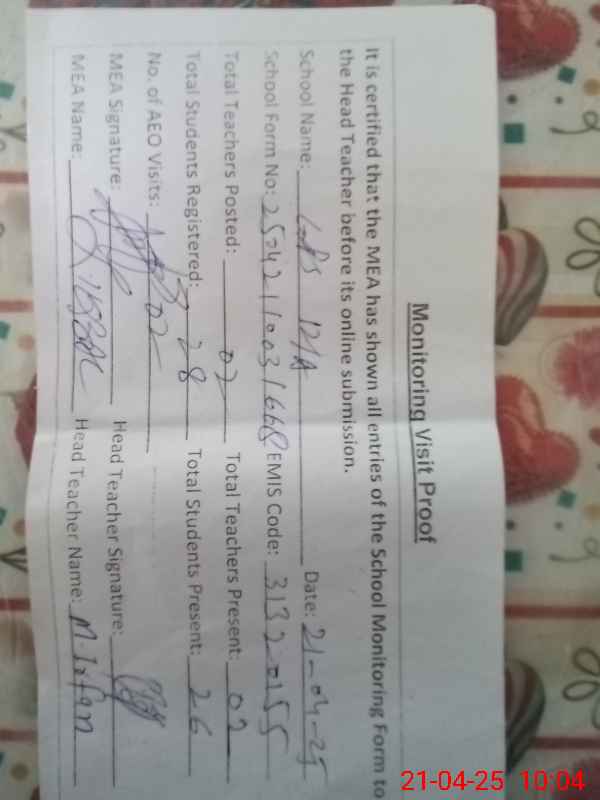 Monitoring Visit Proof
It is certified that the MEA has shown all entries of the School Monitoring Form to
the Head Teacher before its online submission.
School Name: 121A Date: 21-04-25
School Form No: EMIS Code: 31320155
Total Teachers Posted: 02 Total Teachers Present: 02
Total Students Registered: 28 Total Students Present: 26
No. of AEO Visits: 02
MEA Signature: Head Teacher Signature:
MEA Name: Head Teacher Name: M. Irfan
21-04-25 10:04